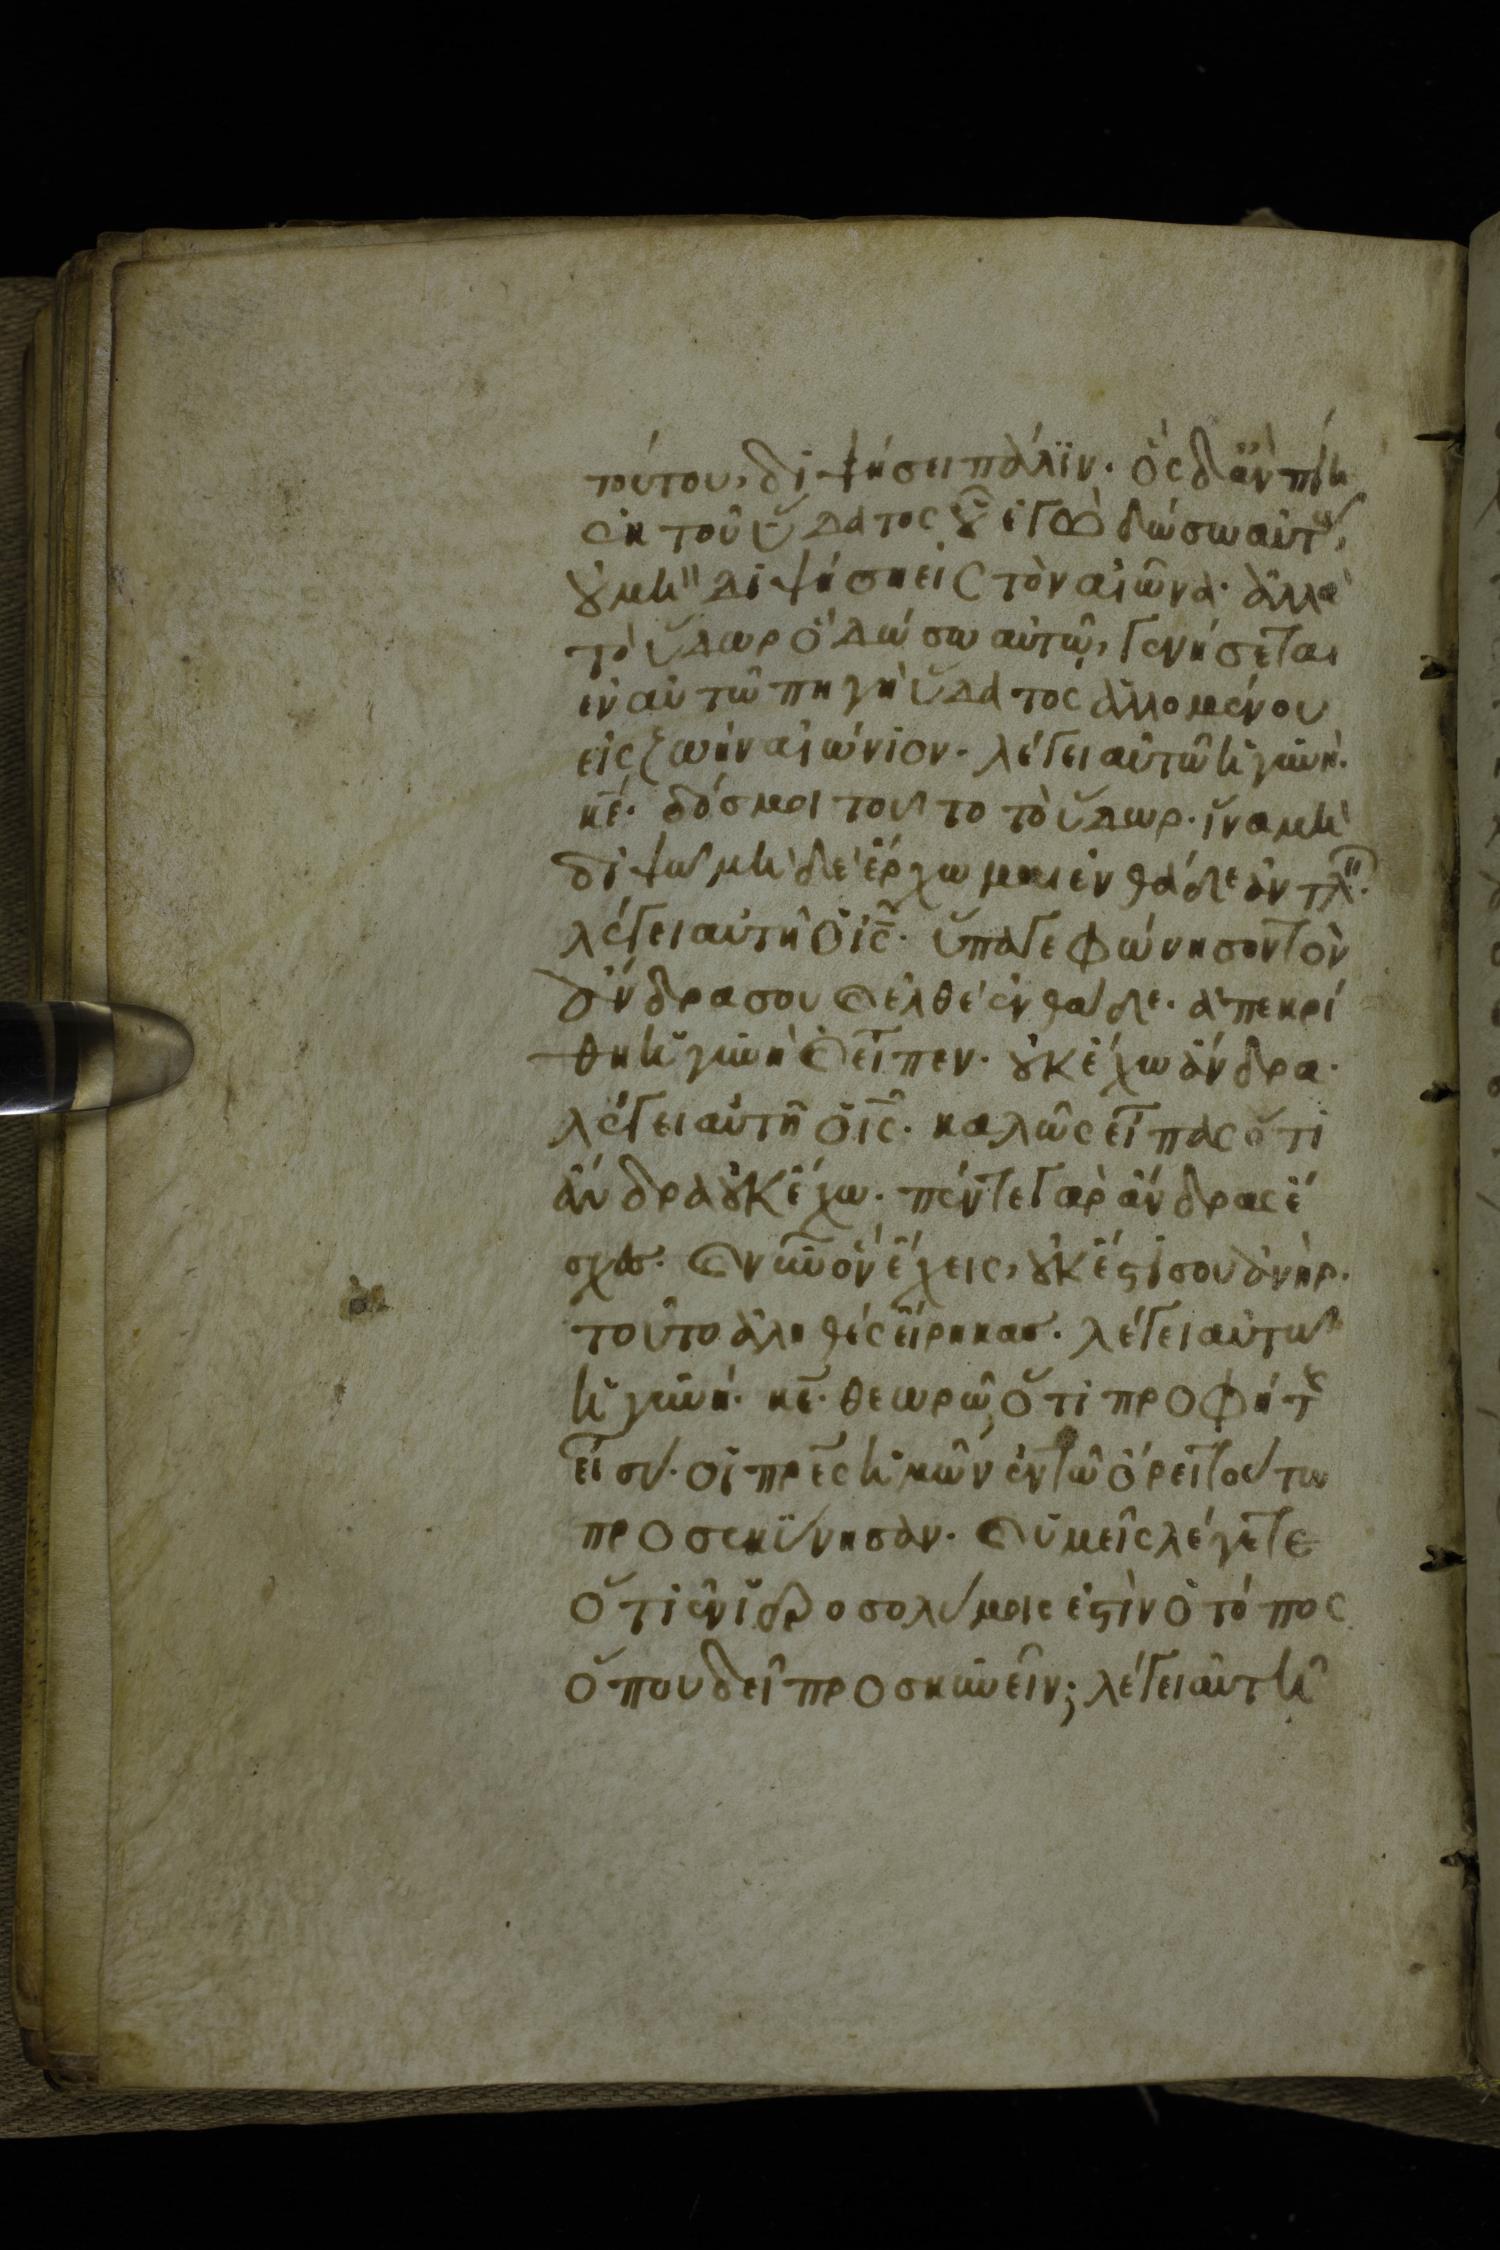 τούτου, διψήσει πάλϊν. ὃς δ ἂν πίη
ἐκ τοῦ ὕδατος οὗ ἐγὼ δώσω αὐτῶ,
οὐ μὴ διψήση εἰς τὸν αἰῶνα. ἀλλὰ
τὸ ὕδωρ ὃ δώσω αὐτῶ, γενήσεται
ἐν αὐτῶ πηγὴ ὕδατος ἁλλομένου
εἰς ζωὴν αἰώνιον. λέγει αὐτῶ ἡ γυνή.
κε. δός μοι τοῦτο τὸ ὕδωρ. ἵνα μὴ
διψῶ μὴ δὲ ἔρχωμαι ἐνθάδε ἀντλ.
λέγει αὐτῆ ὁ ις. ὕπαγε φώνησον τὸν
ἄνδρα σου κ ἐλθὲ ἐνθάδε. ἀπεκρί
θη ἡ γυνὴ κ εἶπεν. οὐκ ἔχω ἄνδρα.
λέγει αὐτῆ ὁ ις. καλῶς εἶπας ὅτι
ἄνδρα οὐκ ἔχω. πέντε γὰρ ἄνδρας ἔ
σχες. κ νῦν ὃν ἔχεις, οὐκ ἔστί σου ἀνήρ.
τοῦτο ἀληθὲς εἴρηκας. λέγει αὐτῶ
ἡ γυνή. κε. θεωρῶ ὅτι προφήτ
εἶ σύ. οἱ πρες ἡμῶν ἐν τῶ ὄρει τούτω
προσεκύνησαν. κ ὑμεῖς λέγετε
ὅτι ἐν ἱεροσολύμοις ἐστὶν ὁ τόπος
ὅπου δεῖ προσκυνεῖν; λέγει αὐτῆ